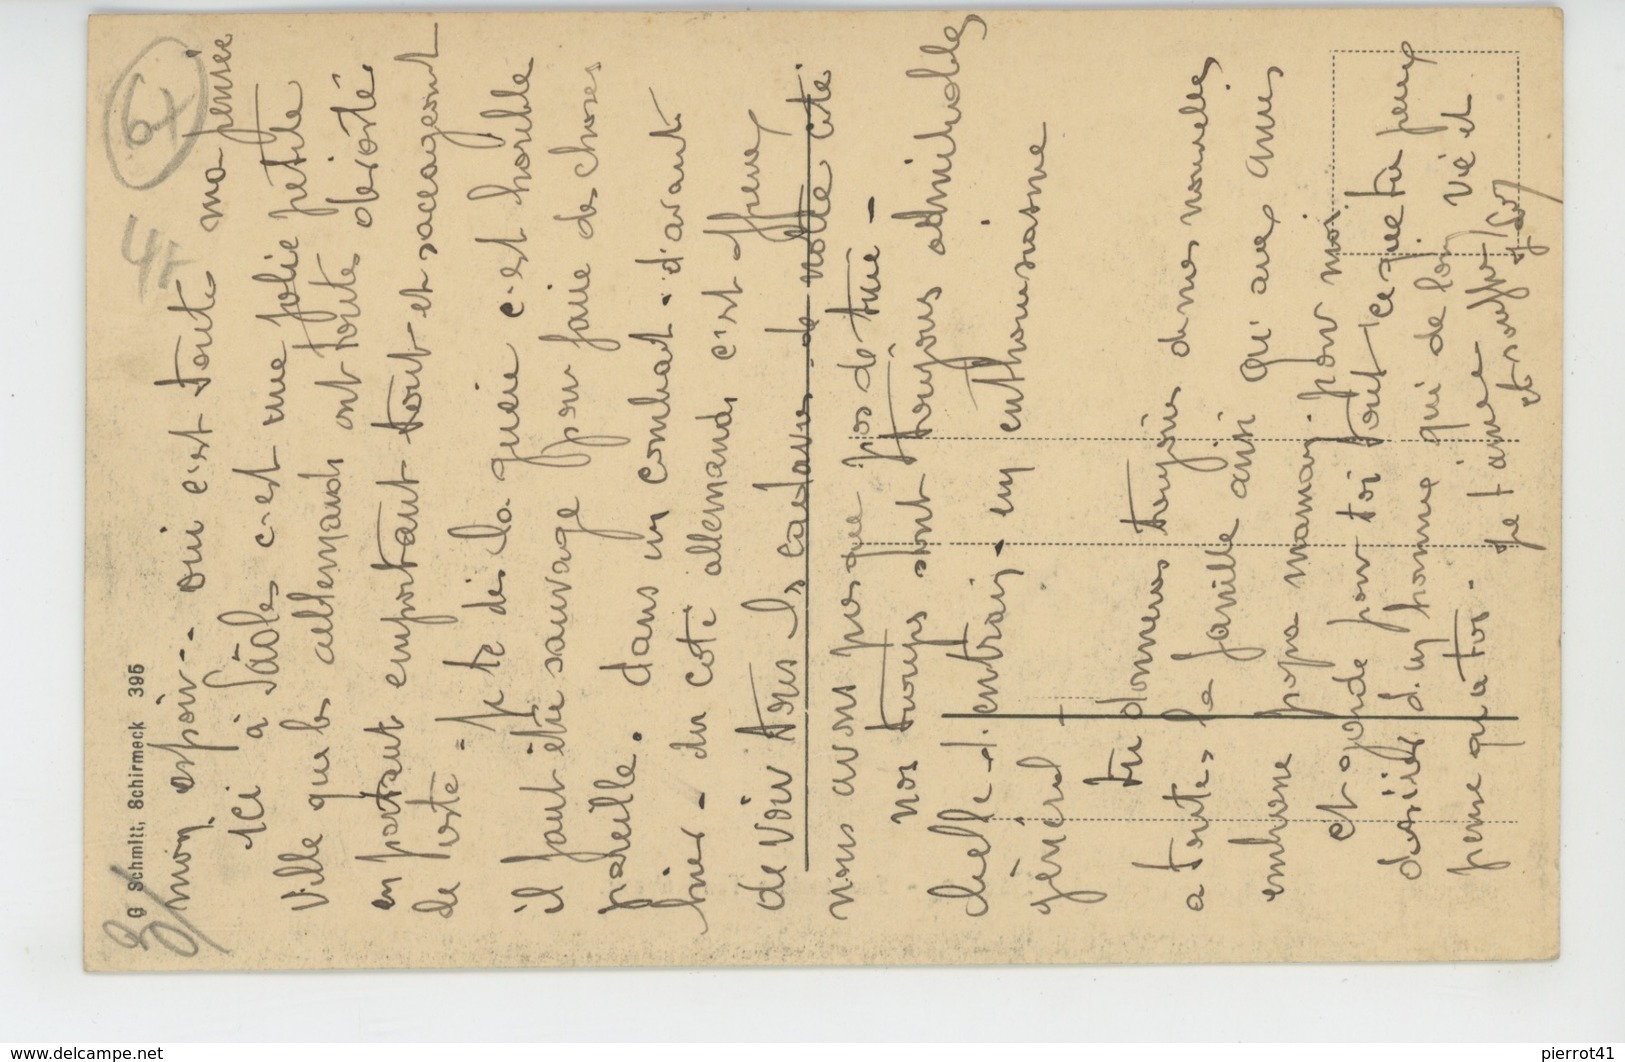 G. Schmitt, Schirmeck 395
67
4F
mon espoir - oui c'est toute ma pensée
ici à Saâles c'est une jolie petite
ville que les allemands ont toutes
en partant emportant tout et saccageant
de reste = je te dis la guerre c'est horrible
il faut être sauvage pour faire des choses
pareille. dans un combat d'avant
hier - du coté allemands c'est affreux
de voir tous les cadavres de notte coté
nous avons presque pas de tué -
nos troups sont toujours admirables
d'entrain - un enthousiasme
général
tu donneras toujours de mes nouvelles
a toute la famille ainsi qu'aux amis
embrasse papa maman pour moi
et garde pour toi tout ce que tu peux
désirer d'un homme qui de loin vie et
pense qu'a toi. je t'aime
et souffre